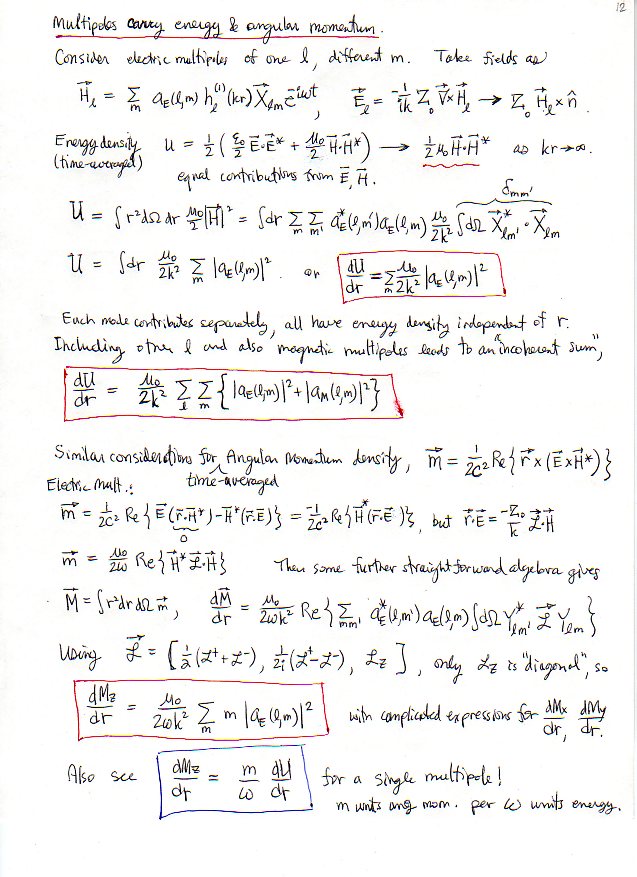 12
Multipoles carry energy & angular momentum.
Consider electric multipoles of one l, different m. Take fields as
H⃗_l = Σ_m a_E(l,m) h_l^(1)(kr) X⃗_lm e^-iωt, E⃗_l = -1/ik Z_0 ∇⃗×H⃗_l → Z_0 H⃗_l × n̂.
Energy density (time-averaged) u = 1/2 (ε_0/2 E⃗·E⃗* + μ_0/2 H⃗·H⃗*) → 1/2 μ_0 H⃗·H⃗* as kr→∞.
equal contributions from E⃗, H⃗.
δ_mm'
U = ∫r²dΩ dr μ_0/2 |H⃗|² = ∫dr Σ_m Σ_m' a_E*(l,m') a_E(l,m) μ_0/2k² ∫dΩ X⃗*_lm' · X⃗_lm
U = ∫dr μ_0/2k² Σ_m |a_E(l,m)|². or dU/dr = Σ_m μ_0/2k² |a_E(l,m)|²
Each mode contributes separately, all have energy density independent of r.
Including other l and also magnetic multipoles leads to an "incoherent sum",
dU/dr = μ_0/2k² Σ_l Σ_m { |a_E(l,m)|² + |a_M(l,m)|² }
Similar considerations for time-averaged Angular Momentum density, m⃗ = 1/2c² Re{ r⃗ × (E⃗×H⃗*) }
Electric mult.:
m⃗ = 1/2c² Re{ E⃗(r⃗·H⃗*) - H⃗*(r⃗·E⃗) } = -1/2c² Re{ H⃗*(r⃗·E⃗) }, but r⃗·E⃗ = -Z_0/k ℒ⃗·H⃗
0
m⃗ = μ_0/2ω Re{ H⃗* ℒ⃗·H⃗ } Then some further straightforward algebra gives
M⃗ = ∫r²dr dΩ m⃗, dM⃗/dr = μ_0/2ωk² Re{ Σ_mm' a_E*(l,m') a_E(l,m) ∫dΩ Y*_lm' ℒ⃗ Y_lm }
Using ℒ⃗ = [ 1/2(ℒ⁺+ℒ⁻), 1/2i(ℒ⁺-ℒ⁻), ℒ_z ], only ℒ_z is "diagonal", so
dM_z/dr = μ_0/2ωk² Σ_m m |a_E(l,m)|² with complicated expressions for dM_x/dr, dM_y/dr.
Also see dM_z/dr = m/ω dU/dr for a single multipole!
m units ang mom. per ω units energy.